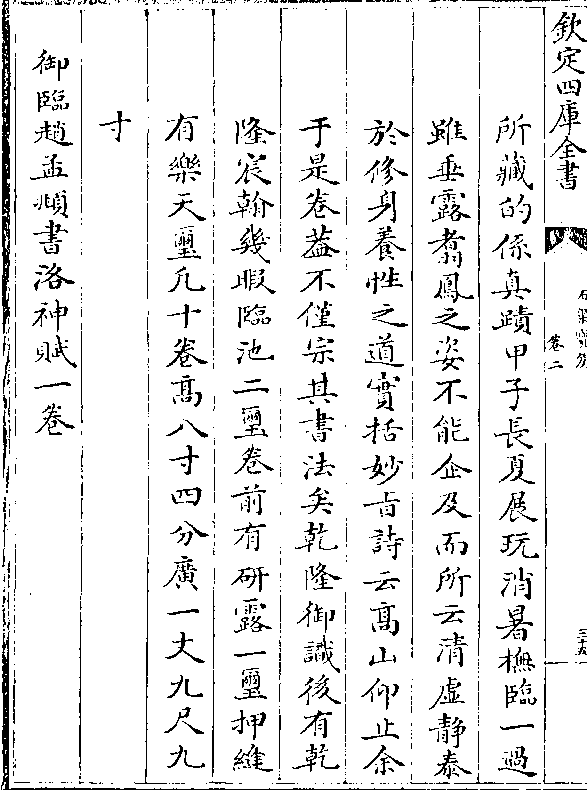 欽定四庫全書
卷二
所藏的係真蹟甲子長夏展玩消暑橅臨一過
雖垂露翥鳳之姿不能企及而所云清虛静泰
於修身養性之道實括妙旨詩云髙山仰止余
于是卷葢不僅宗其書法矣乾隆御識後有乾
隆宸翰幾暇臨池二璽卷前有研露一璽押縫
有樂天璽凡十卷髙八寸四分廣一丈九尺九
寸
御臨趙孟頫書洛神賦一卷